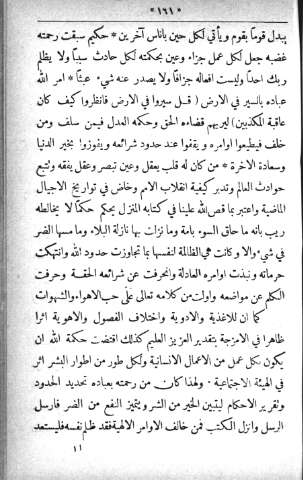 * ١٦١ *
يبدل قومًا بقوم ويأتي لكل حين باناس آخرين * حكيم سبقت رحمته
غضبه جعل لكل عمل جزاء وعين بحكمته لكل حادث سببًا ولا يظلم
ربك احدًا وليست افعاله جزافًا ولا يصدر عنه شيء عبثًا * امر الله
عباده بالسير في الارض ( قل سيروا في الارض فانظروا كيف كان
عاقبة المكذبين ) ليريهم قضاءه الحق وحكمه العدل فيمن سلف ومن
خلف فيطيعوا اوامره ويقفوا عند حدود شرائعه ويفوزوا بخير الدنيا
وسعادة الاخرة * من كان له قلب يعقل وعين تبصر وعقل يفقه وتتبع
حوادث العالم وتدبر كيفية انقلاب الامم وخاض في تواريخ الاجيال
الماضية واعتبر بما قص الله علينا في كتابه المنزل يحكم حكمًا لا يخالطه
ريب بانه ما حاق السوء بامة وما نزلت بها نازلة البلاء وما مسها الضر
في شيء الا وكانت هي الظالمة لنفسها بما تجاوزت حدود الله وانتهكت
حرماته ونبذت اوامره العادلة وانحرفت عن شرائعه الحقة وحرفت
الكلم عن مواضعه واولت من كلامه تعالى على حب الاهواء والشهوات
كما ان للاغذية والادوية واختلاف الفصول والاهوية اثرا
ظاهرا في الامزجة بتقدير العزيز العليم كذلك اقتضت حكمة الله ان
يكون لكل عمل من الاعمال الانسانية ولكل طور من اطوار البشر اثر
في الهيئة الاجتماعية ۰ ولهذا كان من رحمته بعباده تحديد الحدود
وتقرير الاحكام ليتبين الخير من الشر ويتميز النفع من الضر فارسل
الرسل وانزل الكتب فمن خالف الاوامر الالهية فقد ظلم نفسه فليستعد
١١